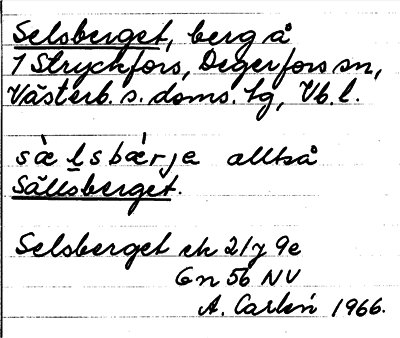 Selsberget, berg å
1 Stryckfors, Degerfors sn,
Västerb. s. doms. tg, Vb. l.
sæ̀l̲sbær̀ja alltså
Sällsberget.
Selsberget ek 21/7 9e
Gn 56 NV
A. Carlén 1966.